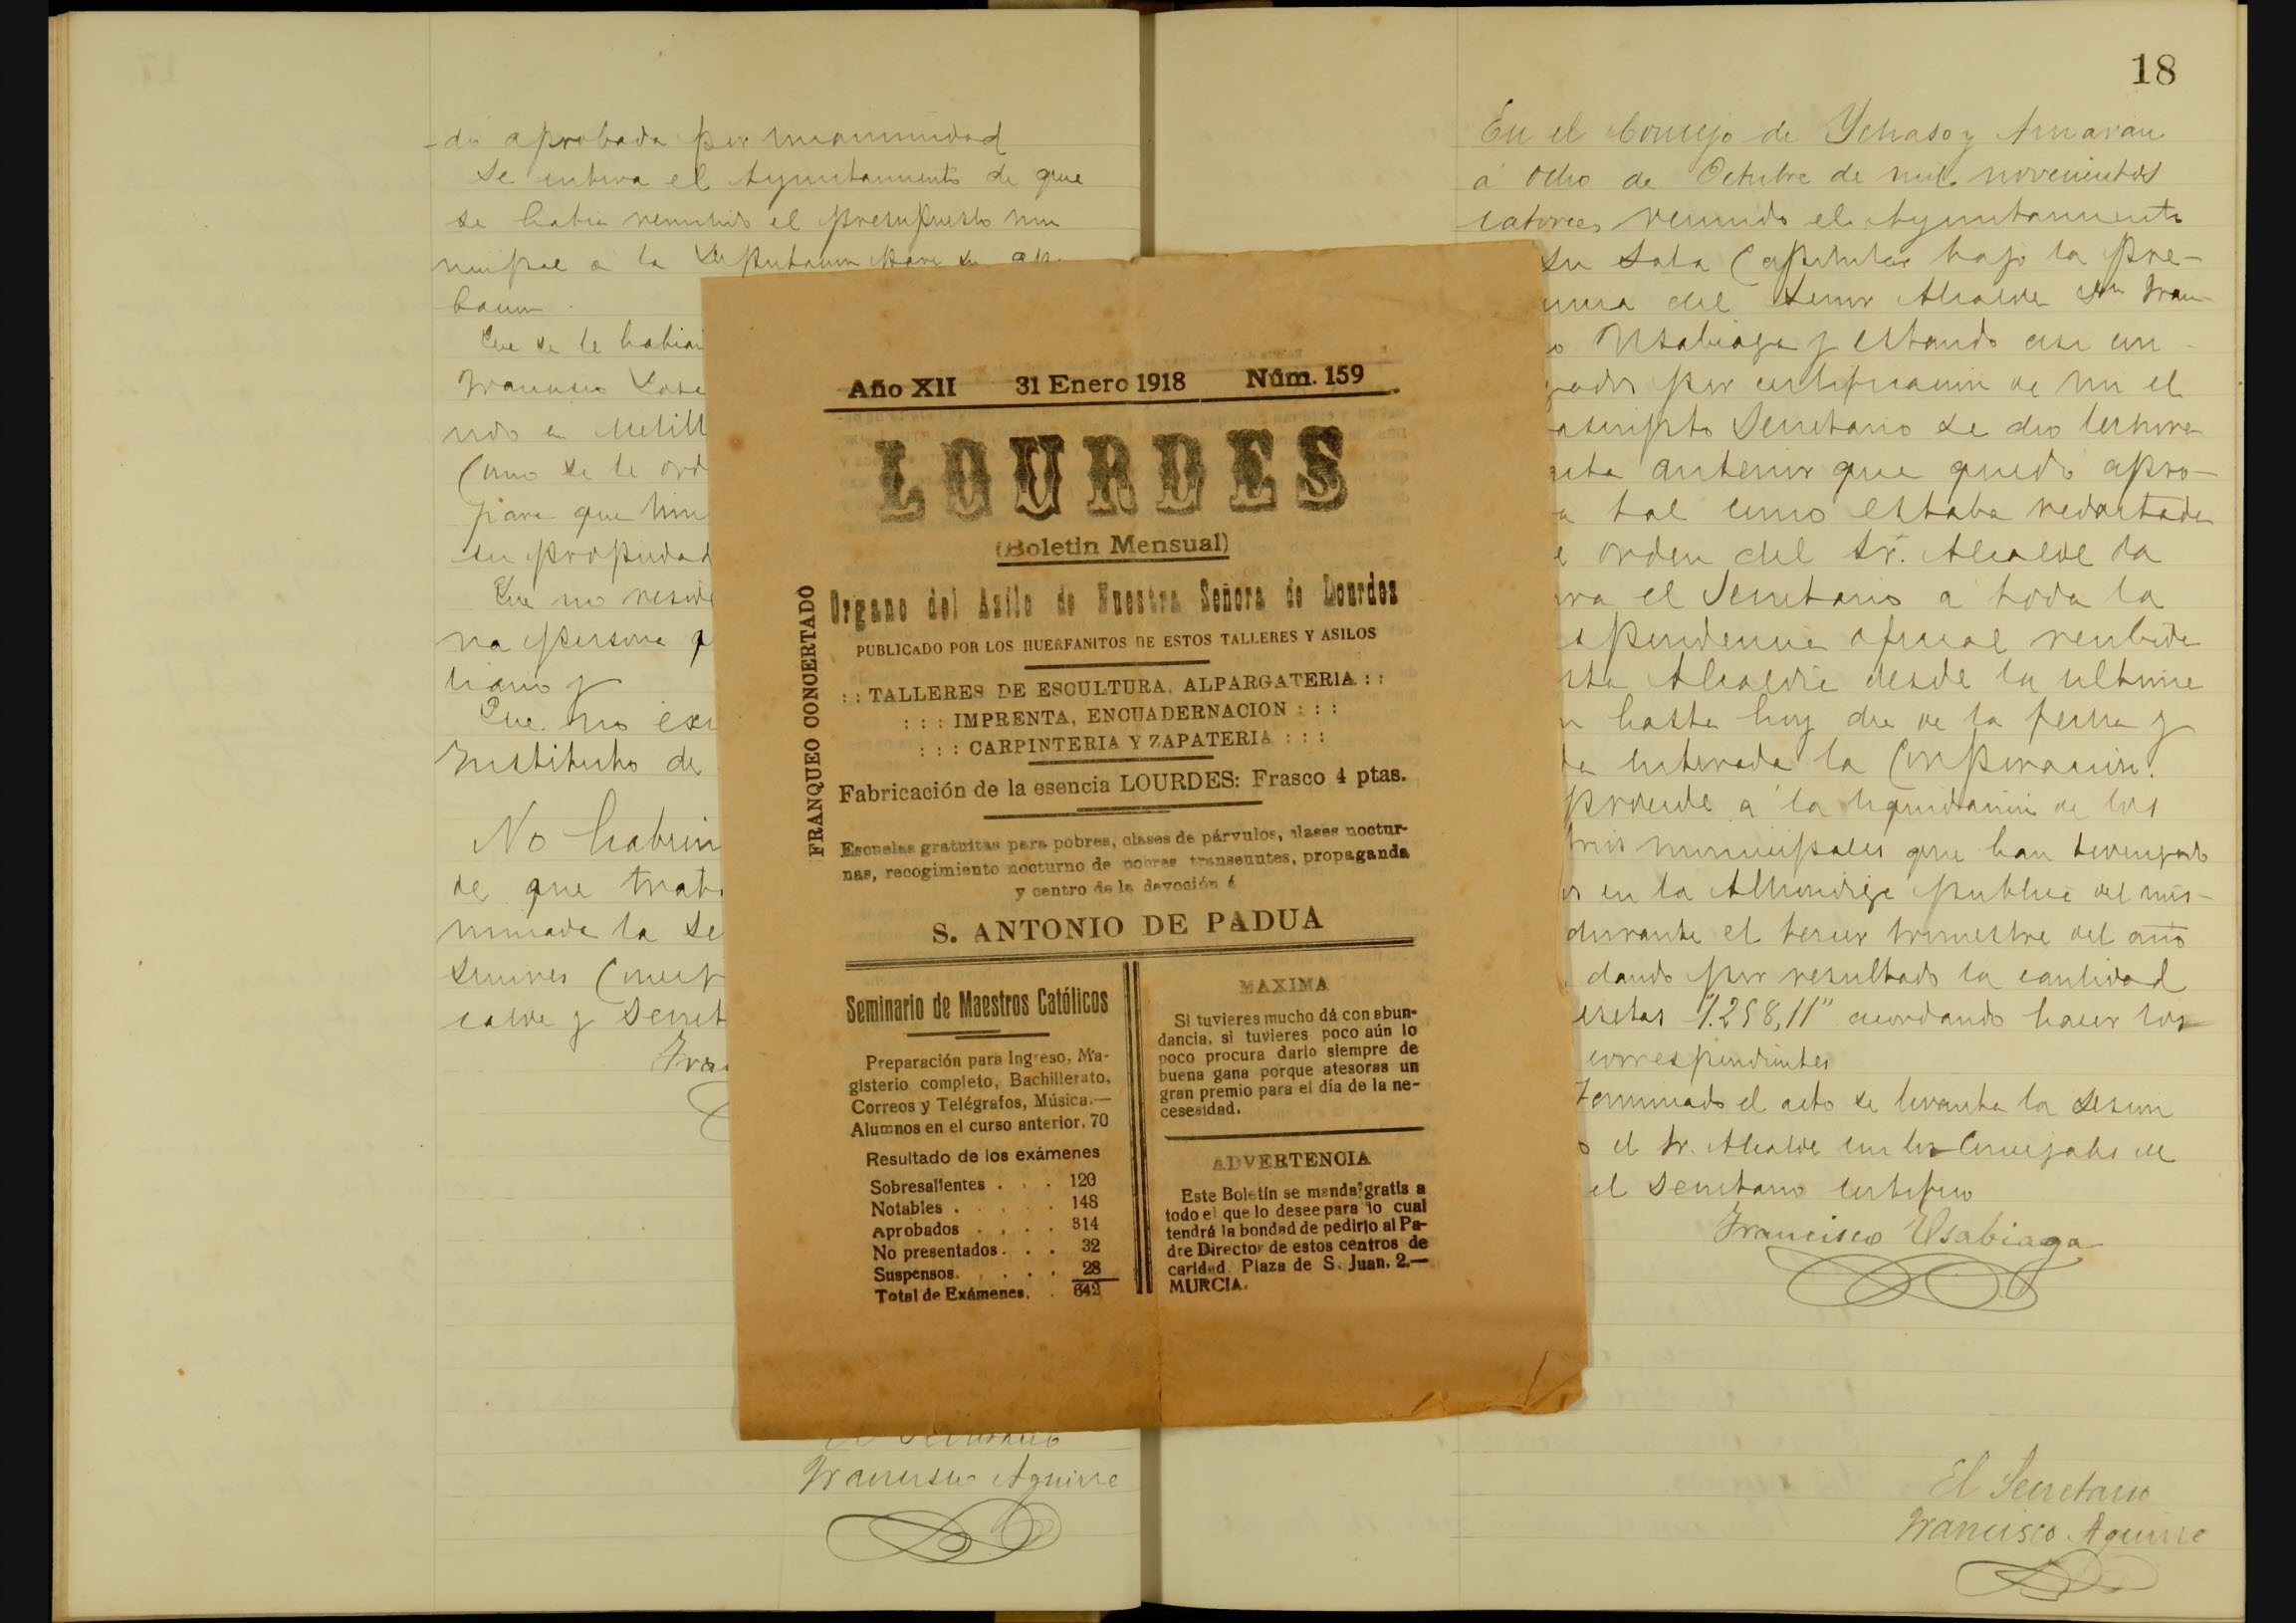 -do aprobada por unanimidad
Se entera el Ayuntamiento de que
se habia remitido el presupuesto mu
nicipal a la Diputacion para su
bacion.
Que se le habia
Francisco Jose
en Melill
Como se le ord
para que
su propiedad
Que no reside
na persona
Que no
Instituto de
No habien
de que trat
minada la se
Senores Concej
calde y Secret
Fran
Francisco Aguirre
Año XII 31 Enero 1918 Núm. 159
LOURDES
(Boletin Mensual)
FRANQUEO CONCERTADO
Organo del Asilo de Nuestra Señora de Lourdes
PUBLICADO POR LOS HUERFANITOS DE ESTOS TALLERES Y ASILOS
: : TALLERES DE ESCULTURA, ALPARGATERIA : :
: : : IMPRENTA, ENCUADERNACION : : :
: : : CARPINTERIA Y ZAPATERIA : : :
Fabricación de la esencia LOURDES: Frasco 4 ptas.
Escuelas gratuitas para pobres, clases de párvulos, clases noctur-
nas, recogimiento nocturno de pobres transeuntes, propaganda
y centro de la devoción á
S. ANTONIO DE PADUA
Seminario de Maestros Católicos
Preparación para Ingreso, Ma-
gisterio completo, Bachillerato,
Correos y Telégrafos, Música.—
Alumnos en el curso anterior, 70
Resultado de los exámenes
Sobresalientes . . . 120
Notables . . . . . 148
Aprobados . . . . 314
No presentados . . . 32
Suspensos. . . . . 28
Total de Exámenes. . 642
MAXIMA
Si tuvieres mucho dá con abun-
dancia, si tuvieres poco aún lo
poco procura darlo siempre de
buena gana porque atesoras un
gran premio para el día de la ne-
cesesidad.
ADVERTENCIA
Este Boletín se manda gratis a
todo el que lo desee para lo cual
tendrá la bondad de pedirlo al Pa-
dre Director de estos centros de
caridad Plaza de S. Juan, 2.—
MURCIA.
18
En el Concejo de Ychaso y Arriaran
á ocho de Octubre de mil novecientos
catorce, reunido el Ayuntamiento
su Sala Capitular bajo la pre-
encia del Senor Alcalde Dn Fran-
o Usabiaga y estando asi con-
gados por certificacion de mi el
ascripto Secretario se dio lectura
acta anterior que quedo apro-
a tal como estaba redactada
e orden del Sr. Alcalde da
ura el Secretario a toda la
espondencia oficial recibida
sta Alcaldia desde la ultima
n hasta hoy dia de la fecha y
da enterada la Corporacion.
procede a la liquidacion de los
trios municipales que han devengado
os en la Alhondiga publica del mis-
durante el tercer trimestre del año
dando por resultado la cantidad
esetas "1.258,11" acordando hacer los
correspondientes
Terminado el acto se levanta la Sesion
o el Sr. Alcalde con los Concejales de
el Secretario certifico
Francisco Usabiaga
El Secretario
Francisco Aguirre